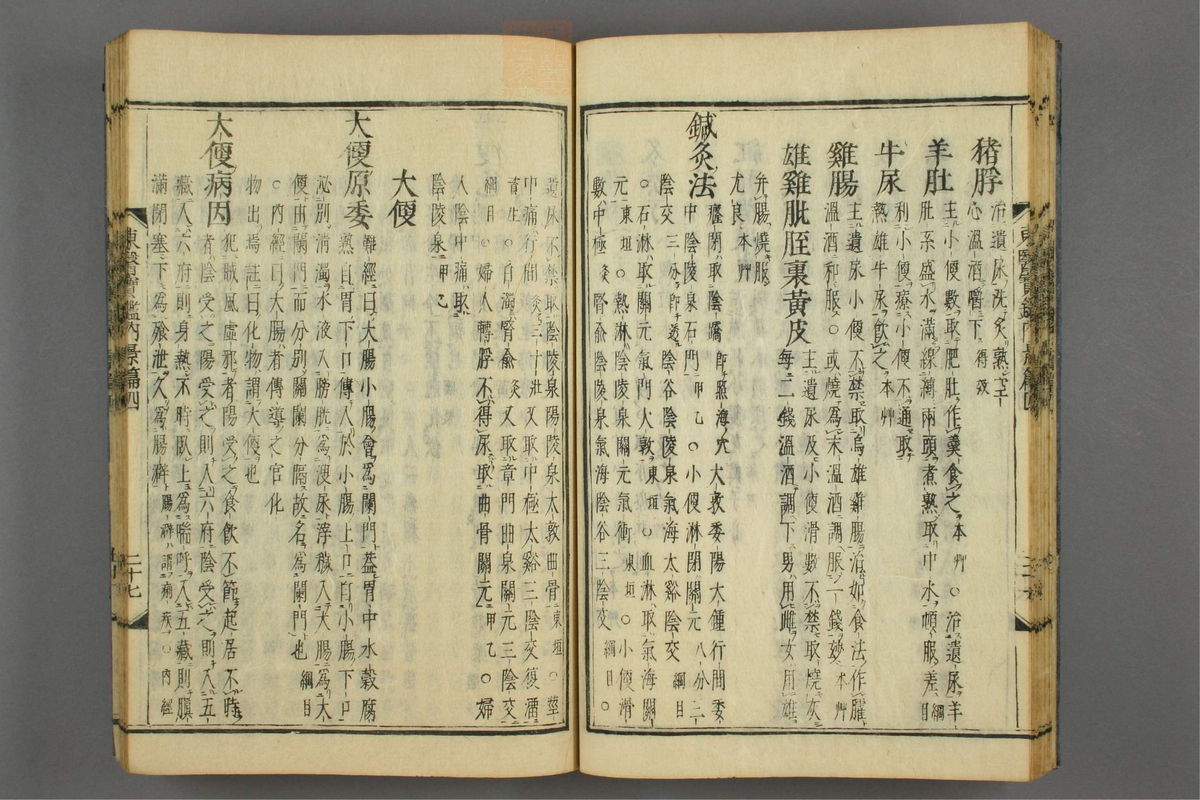 猪脬 治遺尿洗炙熟空
心溫酒嚼下 得效
羊肚 主小便數取肥肚作羹食之 本艸 ○治遺尿羊
肚系盛水滿線縛兩頭煮熟取中水頓服差 綱目
牛尿 利小便療小便不通取
熱雄牛尿飲之 本艸
雞腸 主遺尿小便不禁取烏雄雞腸治如食法作臛
溫酒和服○或燒爲末溫酒調服一錢妙 本艸
雄雞肶胵裏黃皮 主遺尿及小便滑數不禁取燒灰
每二錢溫酒調下男用雌女用雄
幷腸燒服
尤良 本艸
鍼灸法 癃閉取陰蹻 卽照海穴 大敦委陽大鍾行間委
中陰陵泉石門 甲乙 ○小便淋閉關元八分二
陰交 三分卽透 陰谷陰陵泉氣海太谿陰交 綱目
○石淋取關元氣門大敦 東垣 ○血淋取氣海關
元 東垣 ○熱淋陰陵泉關元氣衝 東垣 ○小便滑
數中極 灸 腎兪陰陵泉氣海陰谷三陰交 綱目○
遺尿不禁取陰陵泉陽陵泉太敦曲骨 東垣 ○莖
中痛行間 灸三十壯 又取中極太谿三陰交復溜
資生 ○白濁腎兪 灸 又取章門曲泉關元三陰交
綱目 ○婦人轉脬不得尿取曲骨關元 甲乙 ○婦
人陰中痛取
陰陵泉 甲乙
大便
大便原委 難經曰大腸小腸會爲闌門蓋胃中水穀腐
熟自胃下口傳入於小腸上口自小腸下口
泌別淸濁水液入膀胱爲溲尿滓穢入大腸爲大
便由闌門而分別關闌分隔故名爲闌門也 綱目
○內經曰大腸者傳導之官化
物出焉註曰化物謂大便也
大便病因 犯賊風虛邪者陽受之食飮不節起居不時
者陰受之陽受之則入六府陰受之則入五
藏入六府則身熱不時臥上爲喘呼入五藏則䐜
滿閉塞下爲飱泄久爲腸澼 腸澼謂痢疾○內經
東醫寶鑑內景篇四
二十七